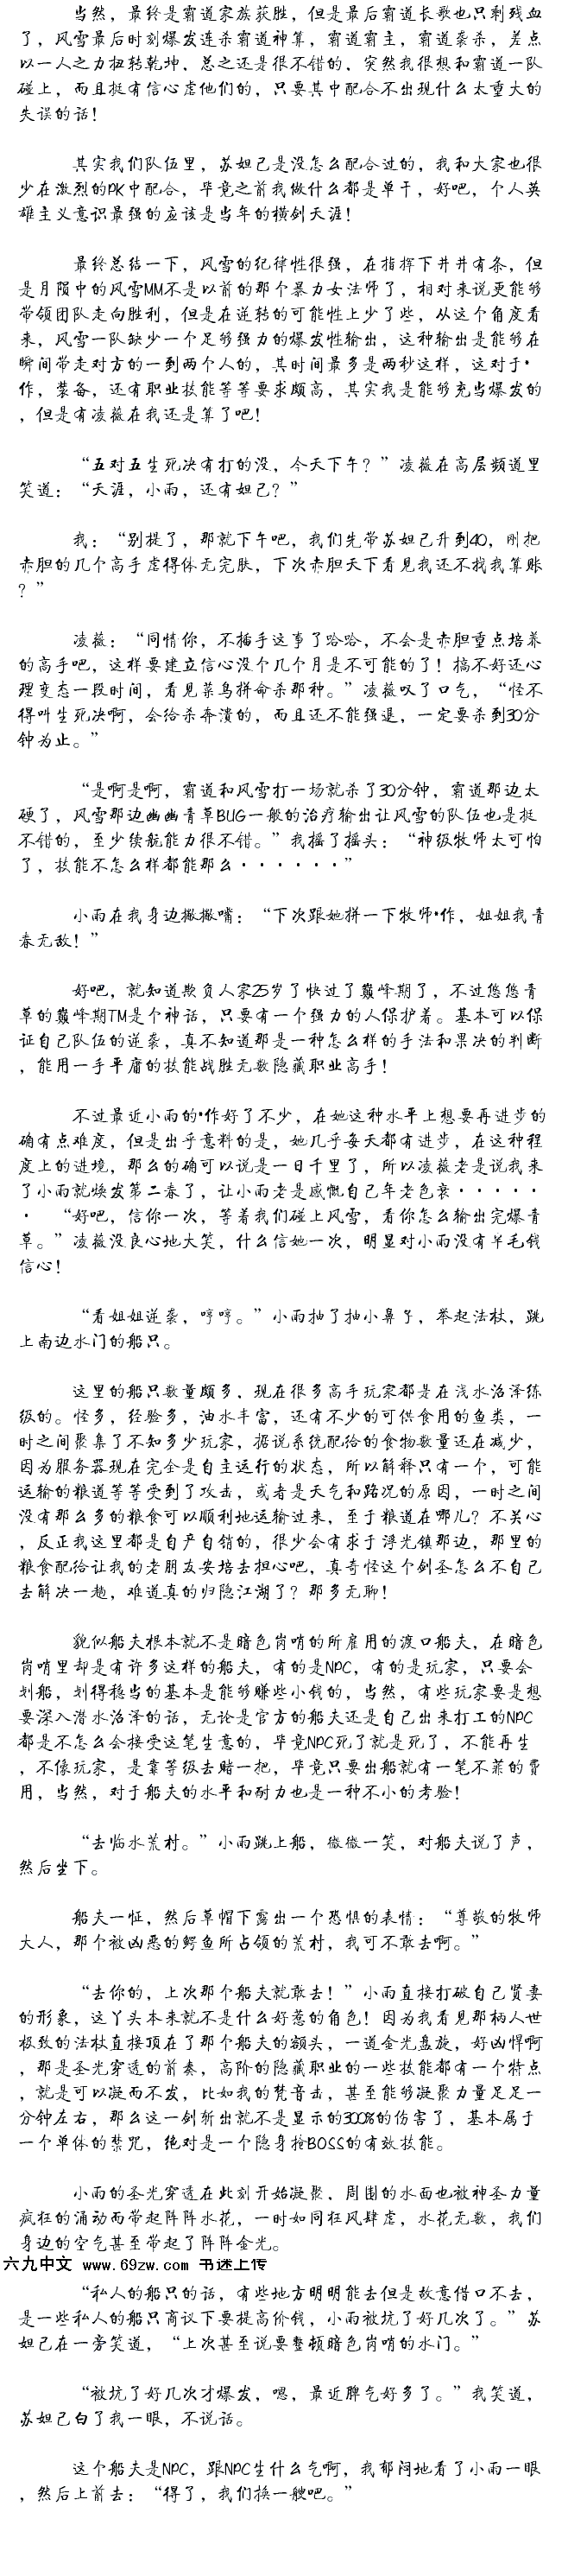 当然，最终是霸道家族获胜，但是最后霸道长歌也只剩残血
了，风雪最后时刻爆发连杀霸道神算，霸道霸主，霸道袭杀，差点
以一人之力扭转乾坤，总之还是很不错的，突然我很想和霸道一队
碰上，而且挺有信心虐他们的，只要其中配合不出现什么太重大的
失误的话！
其实我们队伍里，苏妲己是没怎么配合过的，我和大家也很
少在激烈的PK中配合，毕竟之前我做什么都是单干，好吧，个人英
雄主义意识最强的应该是当年的横剑天涯！
最终总结一下，风雪的纪律性很强，在指挥下井井有条，但
是月陨中的风雪MM不是以前的那个暴力女法师了，相对来说更能够
带领团队走向胜利，但是在逆转的可能性上少了些，从这个角度看
来，风雪一队缺少一个足够强力的爆发性输出，这种输出是能够在
瞬间带走对方的一到两个人的，其时间最多是两秒这样，这对于·
作，装备，还有职业技能等等要求颇高，其实我是能够充当爆发的
，但是有凌薇在我还是算了吧！
“五对五生死决有打的没，今天下午？”凌薇在高层频道里
笑道：“天涯，小雨，还有妲己？”
我：“别提了，那就下午吧，我们先带苏妲己升到40，刚把
赤胆的几个高手虐得体无完肤，下次赤胆天下看见我还不找我算账
？”
凌薇：“同情你，不插手这事了哈哈，不会是赤胆重点培养
的高手吧，这样要建立信心没个几个月是不可能的了！搞不好还心
理变态一段时间，看见菜鸟拼命杀那种。”凌薇叹了口气，“怪不
得叫生死决啊，会给杀奔溃的，而且还不能强退，一定要杀到30分
钟为止。”
“是啊是啊，霸道和风雪打一场就杀了30分钟，霸道那边太
硬了，风雪那边幽幽青草BUG一般的治疗输出让风雪的队伍也是挺
不错的，至少续航能力很不错。”我摇了摇头：“神级牧师太可怕
了，技能不怎么样都能那么······”
小雨在我身边撇撇嘴：“下次跟她拼一下牧师·作，姐姐我青
春无敌！”
好吧，就知道欺负人家25岁了快过了巅峰期了，不过悠悠青
草的巅峰期TM是个神话，只要有一个强力的人保护着。基本可以保
证自己队伍的逆袭，真不知道那是一种怎么样的手法和果决的判断
，能用一手平庸的技能战胜无数隐藏职业高手！
不过最近小雨的·作好了不少，在她这种水平上想要再进步的
确有点难度，但是出乎意料的是，她几乎每天都有进步，在这种程
度上的进境，那么的确可以说是一日千里了，所以凌薇老是说我来
了小雨就焕发第二春了，让小雨老是感慨自己年老色衰·····
·　“好吧，信你一次，等着我们碰上风雪，看你怎么输出完爆青
草。”凌薇没良心地大笑，什么信她一次，明显对小雨没有半毛钱
信心！
“看姐姐逆袭，哼哼。”小雨抽了抽小鼻子，举起法杖，跳
上南边水门的船只。
这里的船只数量颇多，现在很多高手玩家都是在浅水沼泽练
级的。怪多，经验多，油水丰富，还有不少的可供食用的鱼类，一
时之间聚集了不知多少玩家，据说系统配给的食物数量还在减少，
因为服务器现在完全是自主运行的状态，所以解释只有一个，可能
运输的粮道等等受到了攻击，或者是天气和路况的原因，一时之间
没有那么多的粮食可以顺利地运输过来，至于粮道在哪儿？不关心
，反正我这里都是自产自销的，很少会有求于浮光镇那边，那里的
粮食配给让我的老朋友安培去担心吧，真奇怪这个剑圣怎么不自己
去解决一趟，难道真的归隐江湖了？那多无聊！
貌似船夫根本就不是暗色岗哨的所雇用的渡口船夫，在暗色
岗哨里却是有许多这样的船夫，有的是NPC，有的是玩家，只要会
划船，划得稳当的基本是能够赚些小钱的，当然，有些玩家要是想
要深入潜水沼泽的话，无论是官方的船夫还是自己出来打工的NPC
都是不怎么会接受这笔生意的，毕竟NPC死了就是死了，不能再生
，不像玩家，是靠等级去赌一把，毕竟只要出船就有一笔不菲的费
用，当然，对于船夫的水平和耐力也是一种不小的考验！
“去临水荒村。”小雨跳上船，微微一笑，对船夫说了声，
然后坐下。
船夫一怔，然后草帽下露出一个恐惧的表情：“尊敬的牧师
大人，那个被凶恶的鳄鱼所占领的荒村，我可不敢去啊。”
“去你的，上次那个船夫就敢去！”小雨直接打破自己贤妻
的形象，这丫头本来就不是什么好惹的角色！因为我看见那柄人世
极致的法杖直接顶在了那个船夫的额头，一道金光盘旋，好凶悍啊
，那是圣光穿透的前奏，高阶的隐藏职业的一些技能都有一个特点
，就是可以凝而不发，比如我的梵音击，甚至能够凝聚力量足足一
分钟左右，那么这一剑斩出就不是显示的300%的伤害了，基本属于
一个单体的禁咒，绝对是一个隐身抢BOSS的有效技能。
小雨的圣光穿透在此刻开始凝聚，周围的水面也被神圣力量
疯狂的涌动而带起阵阵水花，一时如同狂风肆虐，水花无数，我们
身边的空气甚至带起了阵阵金光。
六九中文 www.69zw.com 书迷上传
“私人的船只的话，有些地方明明能去但是故意借口不去，
是一些私人的船只商议下要提高价钱，小雨被坑了好几次了。”苏
妲己在一旁笑道，“上次甚至说要整顿暗色岗哨的水门。”
“被坑了好几次才爆发，嗯，最近脾气好多了。”我笑道，
苏妲己白了我一眼，不说话。
这个船夫是NPC，跟NPC生什么气啊，我郁闷地看了小雨一眼
，然后上前去：“得了，我们换一艘吧。”